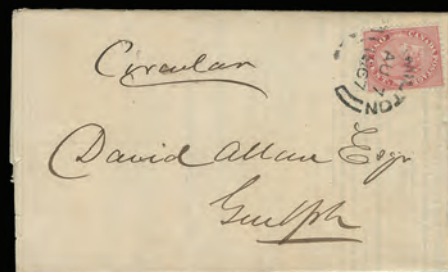 Circular
David Allan Esqr
Guelph
AU 7
1867